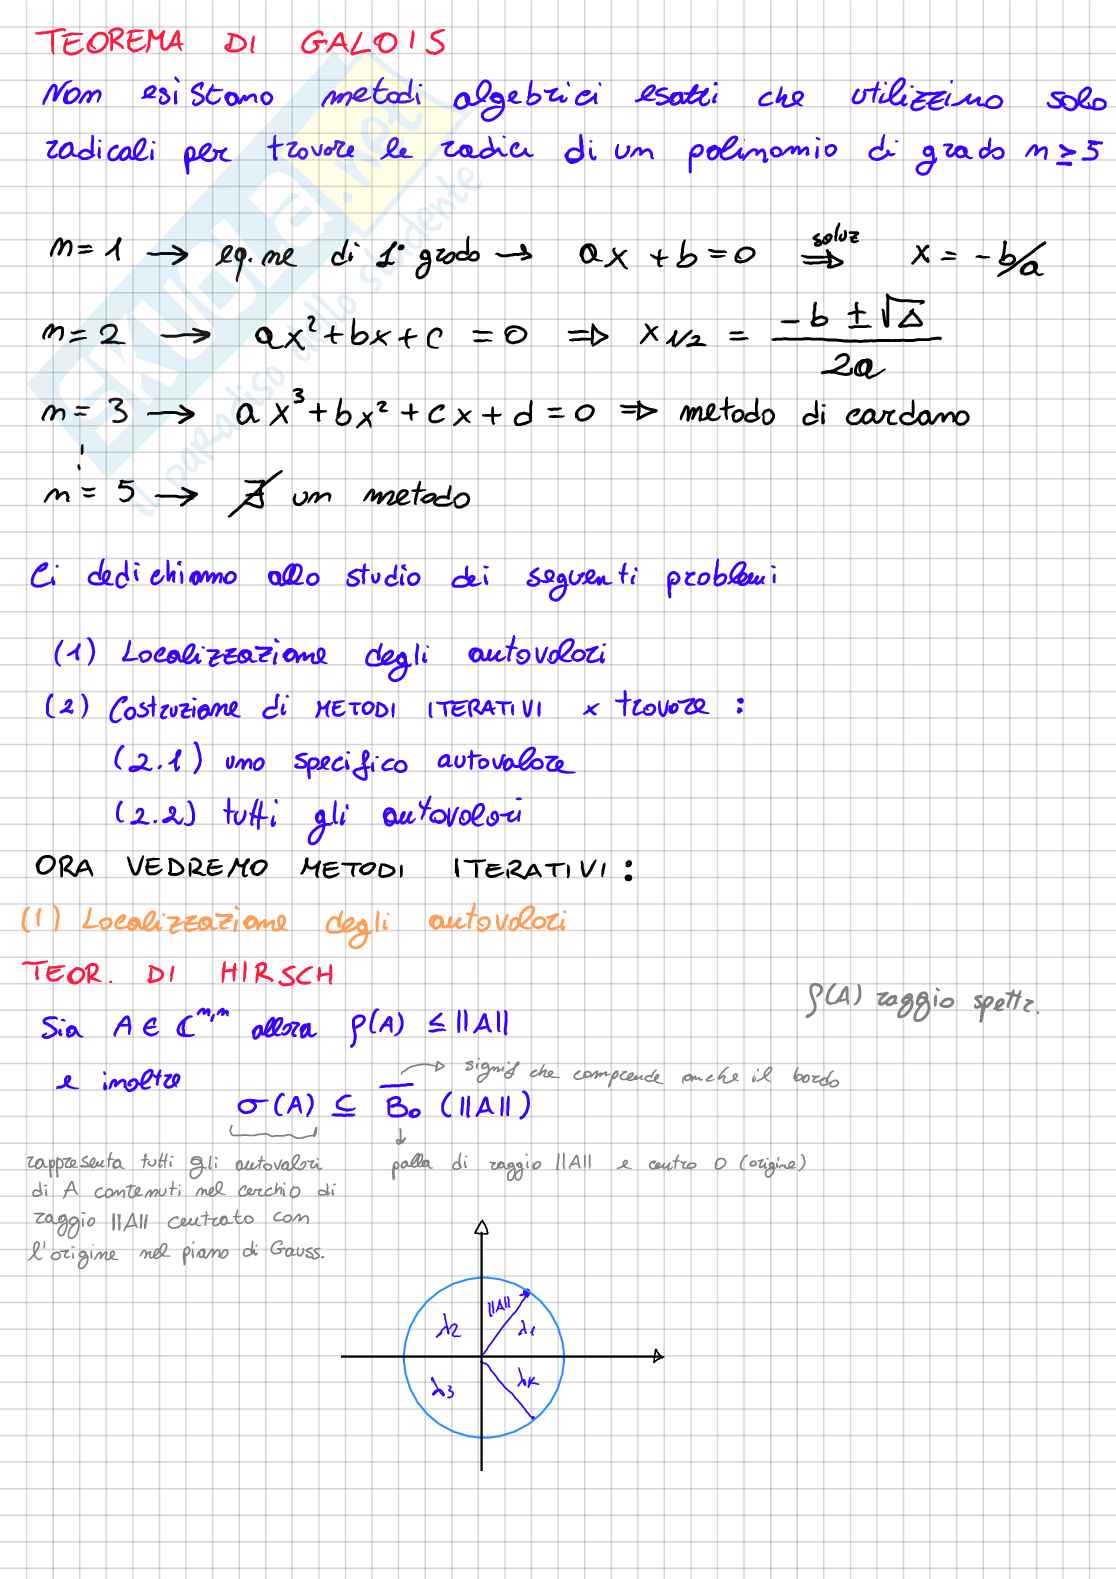 TEOREMA DI GALOIS
Non esistono metodi algebrici esatti che utilizzino solo
radicali per trovare le radici di un polinomio di grado n ≥ 5
n = 1 → eq.ne di 1° grado → ax + b = 0 soluz ⇒ x = -b/a
n = 2 → ax² + bx + c = 0 ⇒ x 1/2 = (-b ± √Δ) / 2a
n = 3 → ax³ + bx² + cx + d = 0 ⇒ metodo di cardano
⋮
n = 5 → ∄ un metodo
Ci dedichiamo allo studio dei seguenti problemi
(1) Localizzazione degli autovalori
(2) Costruzione di METODI ITERATIVI x trovare :
(2.1) uno specifico autovalore
(2.2) tutti gli autovalori
ORA VEDREMO METODI ITERATIVI :
(1) Localizzazione degli autovalori
TEOR. DI HIRSCH
ρ(A) raggio spettr.
Sia A ∈ ℂⁿ,ⁿ allora ρ(A) ≤ ||A||
e inoltre
signif che comprende anche il bordo
σ(A) ⊆ B̅₀ (||A||)
rappresenta tutti gli autovalori
di A contenuti nel cerchio di
raggio ||A|| centrato con
l'origine nel piano di Gauss.
palla di raggio ||A|| e centro 0 (origine)
||A||
λ2
λ1
λ3
λk
SKUOLA.net
il paradiso dello studente